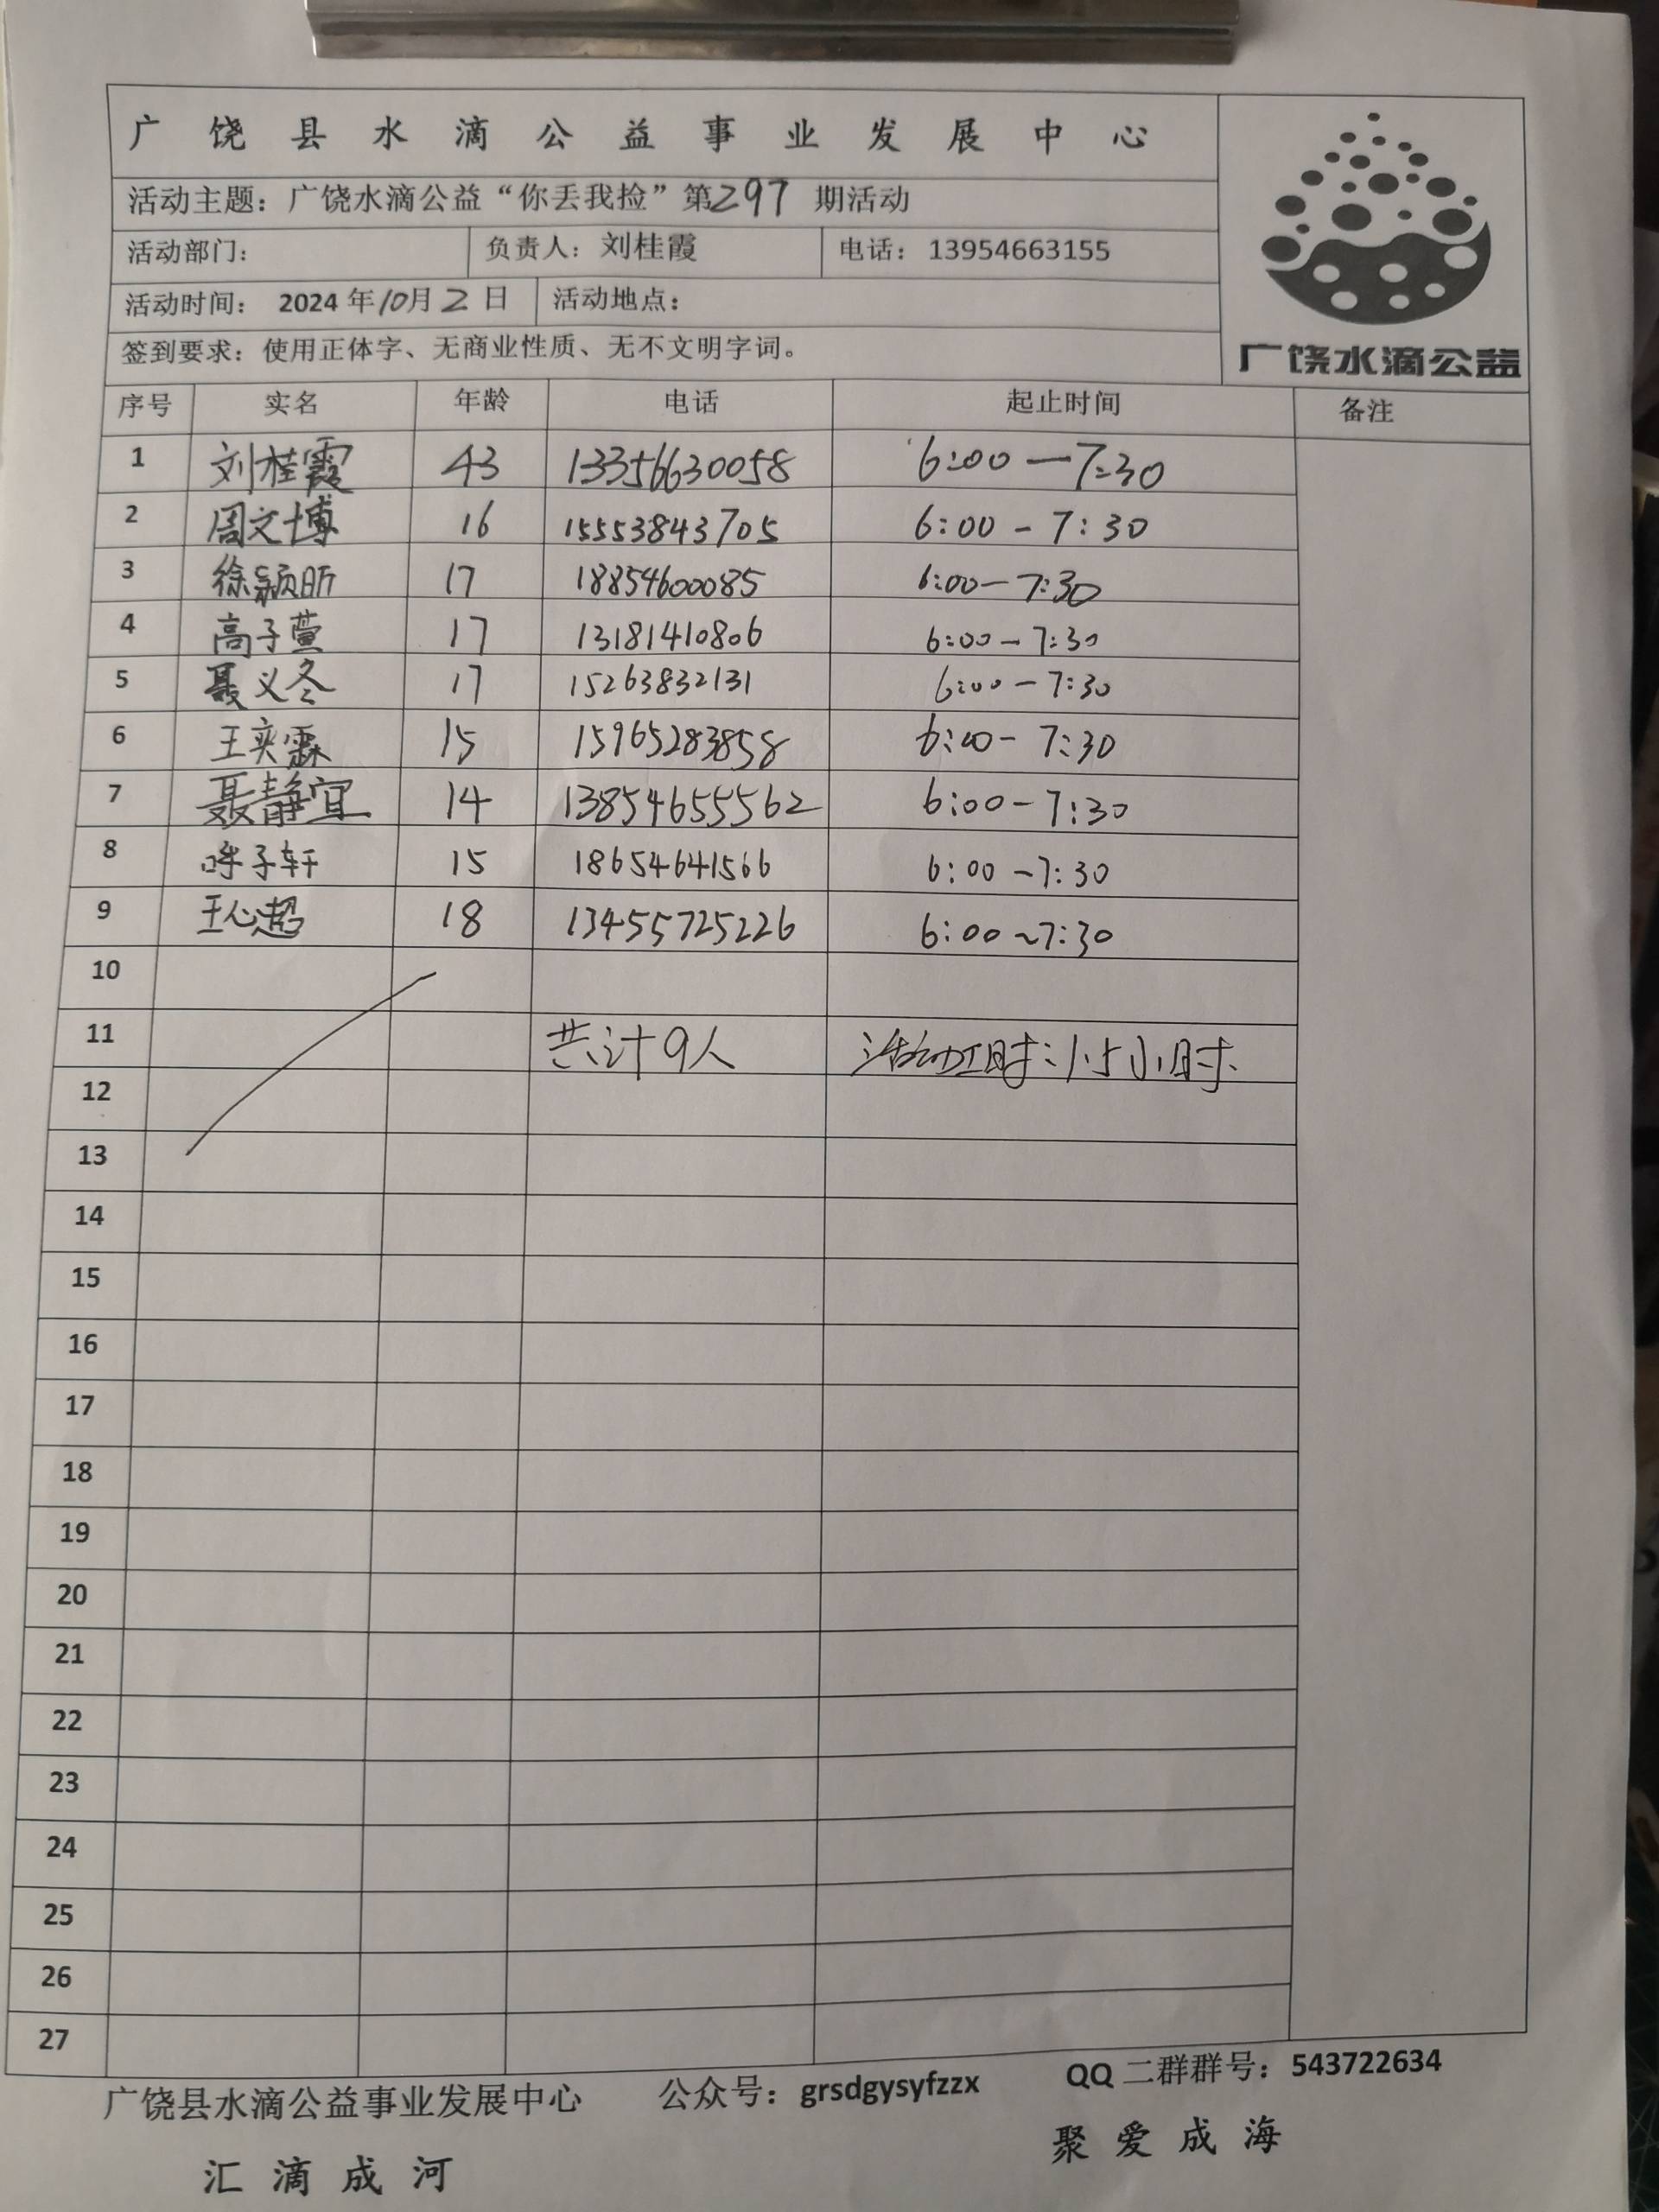 广饶县水滴公益事业发展中心
活动主题：广饶水滴公益“你丢我捡”第297 期活动
活动部门： 负责人：刘桂霞 电话：13954663155
活动时间： 2024年10月2日 活动地点：
签到要求：使用正体字、无商业性质、无不文明字词。
广饶水滴公益
序号 实名 年龄 电话 起止时间 备注
1 刘桂霞 43 13356630058 6:00—7:30
2 周文博 16 15553843705 6:00-7:30
3 徐颖昕 17 18854600085 6:00-7:30
4 高子萱 17 13181410806 6:00-7:30
5 聂义冬 17 15263832131 6:00-7:30
6 王奕霖 15 15965283858 6:00-7:30
7 聂静宜 14 13854655562 6:00-7:30
8 子轩 15 18654641566 6:00-7:30
9 王心超 18 13455725226 6:00~7:30
10
11 共计9人 活动工时：1.5小时.
12
13
14
15
16
17
18
19
20
21
22
23
24
25
26
27
广饶县水滴公益事业发展中心 公众号：grsdgysyfzzx QQ二群群号：543722634
汇滴成河 聚爱成海